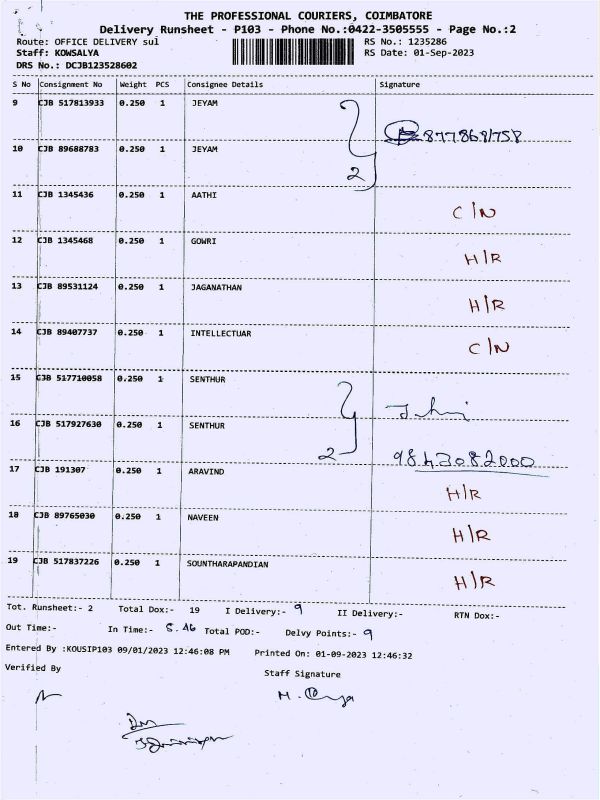 THE PROFESSIONAL COURIERS, COIMBATORE
Delivery Runsheet - P103 - Phone No.:0422-3505555 - Page No.:2
Route: OFFICE DELIVERY sul RS No.: 1235286
Staff: KOWSALYA RS Date: 01-Sep-2023
DRS No.: DCJB123528602
S No Consignment No Weight PCS Consignee Details Signature
9 CJB 517813933 0.250 1 JEYAM
8778681758
10 CJB 89688783 0.250 1 JEYAM
2
11 CJB 1345436 0.250 1 AATHI
C/N
12 CJB 1345468 0.250 1 GOWRI
H/R
13 CJB 89531124 0.250 1 JAGANATHAN
H/R
14 CJB 89407737 0.250 1 INTELLECTUAR
C/N
15 CJB 517710058 0.250 1 SENTHUR
16 CJB 517927630 0.250 1 SENTHUR
2 9843082000
17 CJB 191307 0.250 1 ARAVIND
H/R
18 CJB 89765030 0.250 1 NAVEEN
H/R
19 CJB 517837226 0.250 1 SOUNTHARAPANDIAN
H/R
Tot. Runsheet:- 2 Total Dox:- 19 I Delivery:- 9 II Delivery:- RTN Dox:-
Out Time:- In Time:- 5.46 Total POD:- Delvy Points:- 9
Entered By :KOUSIP103 09/01/2023 12:46:08 PM Printed On: 01-09-2023 12:46:32
Verified By Staff Signature